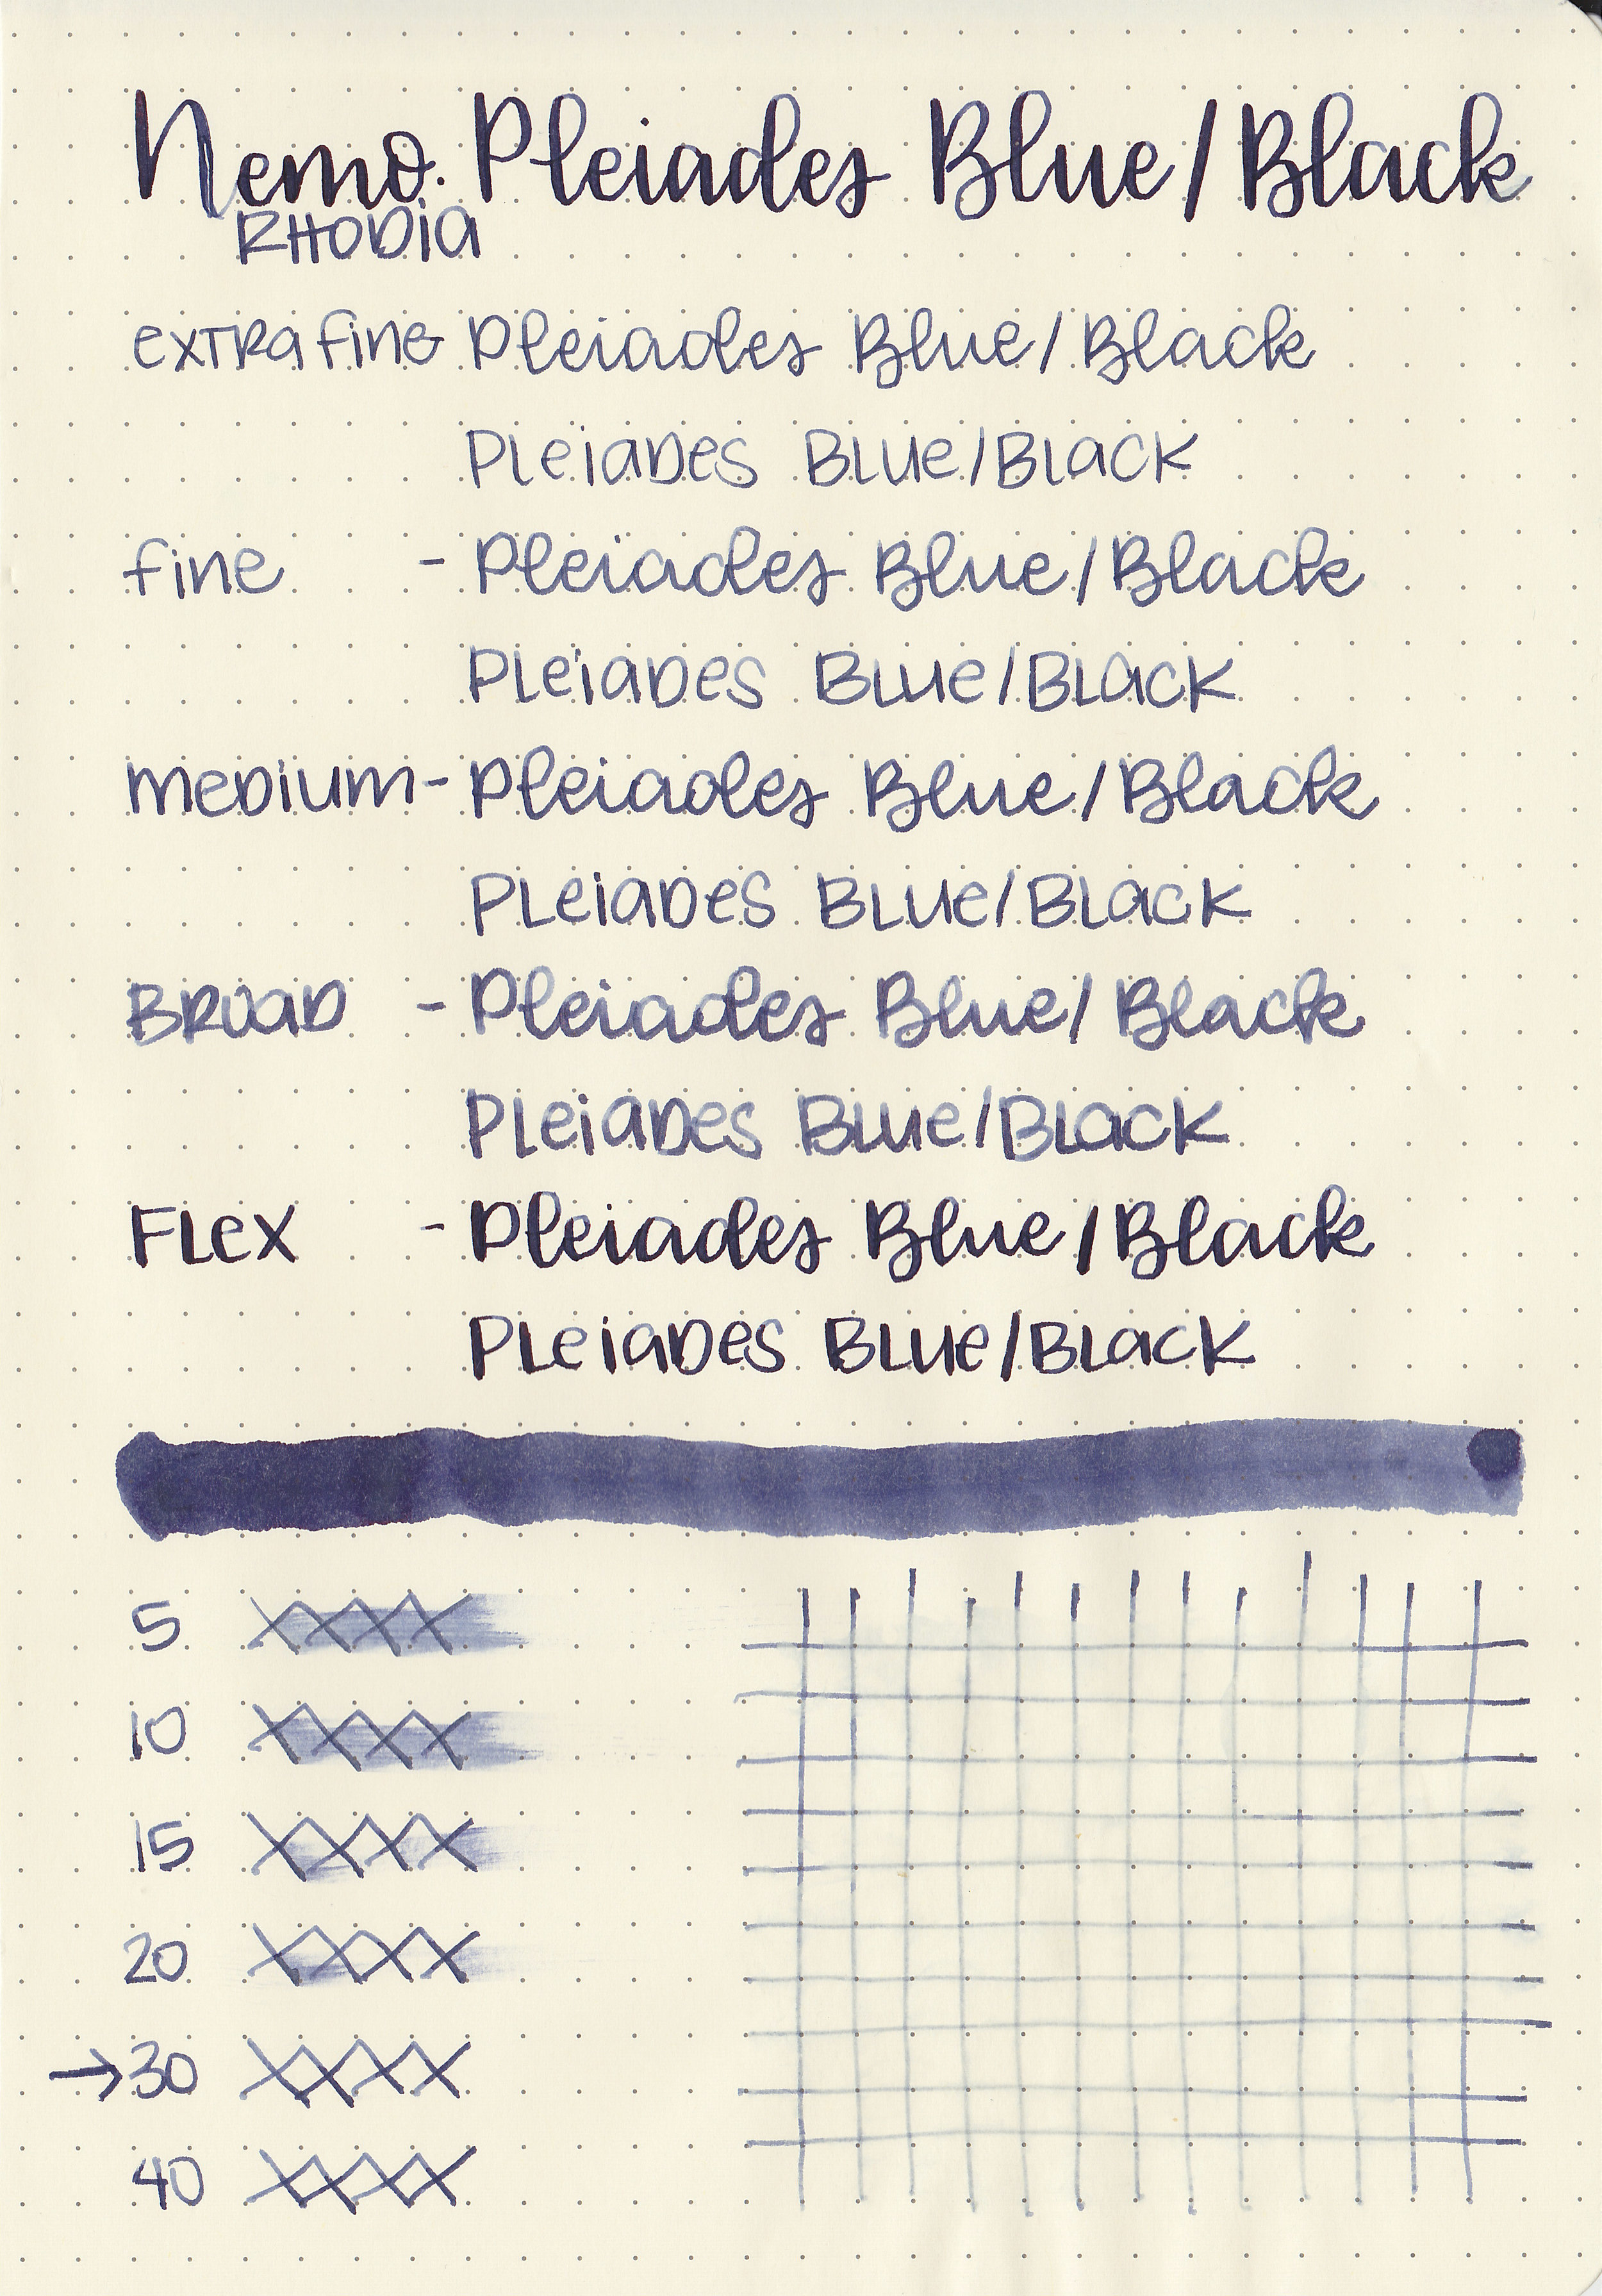 Nemo. Pleiades Blue/Black
RHODIA
extra fine Pleiades Blue/Black
Pleiades Blue/Black
fine - Pleiades Blue/Black
Pleiades Blue/Black
medium - Pleiades Blue/Black
Pleiades Blue/Black
Broad - Pleiades Blue/Black
Pleiades Blue/Black
Flex - Pleiades Blue/Black
Pleiades Blue/Black
5 XXXX
10 XXXX
15 XXXX
20 XXXX
→30 XXXX
40 XXXX